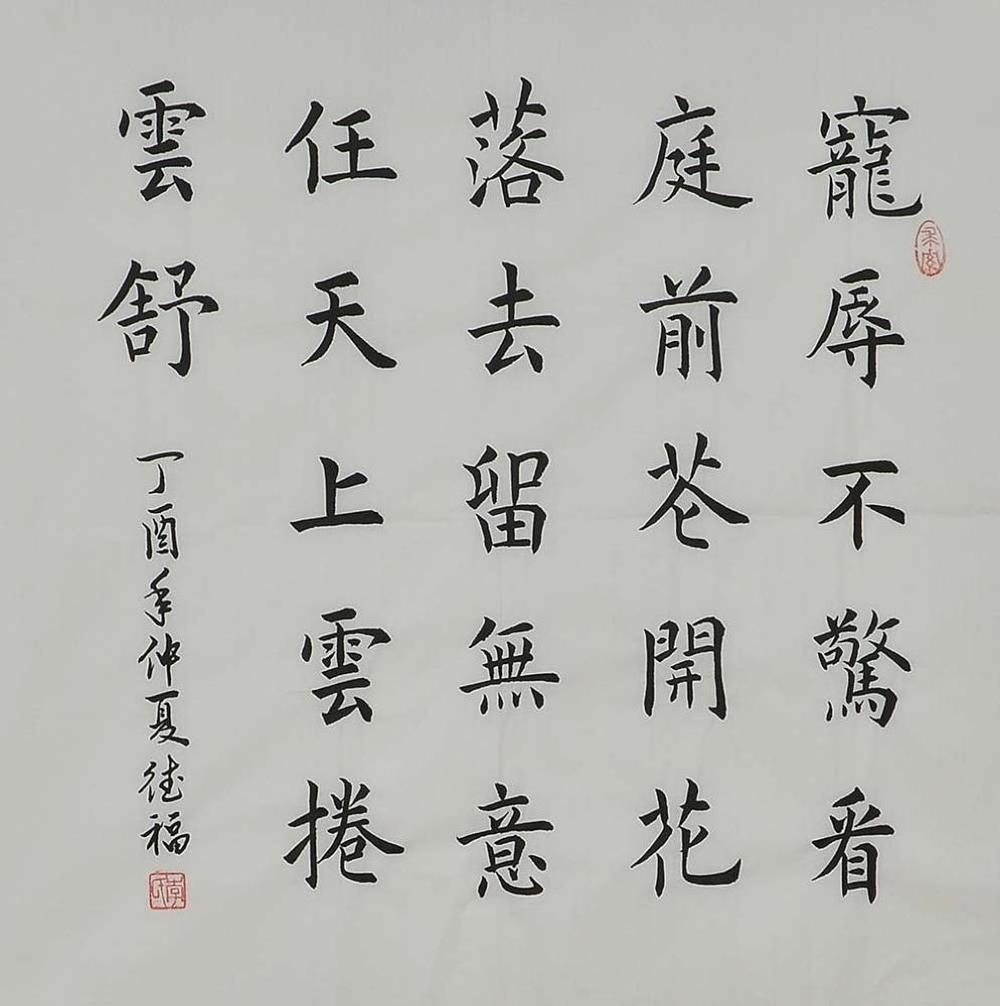 寵辱不驚看
庭前花開花
落去留無意
任天上雲捲
雲舒
丁酉年仲夏德福